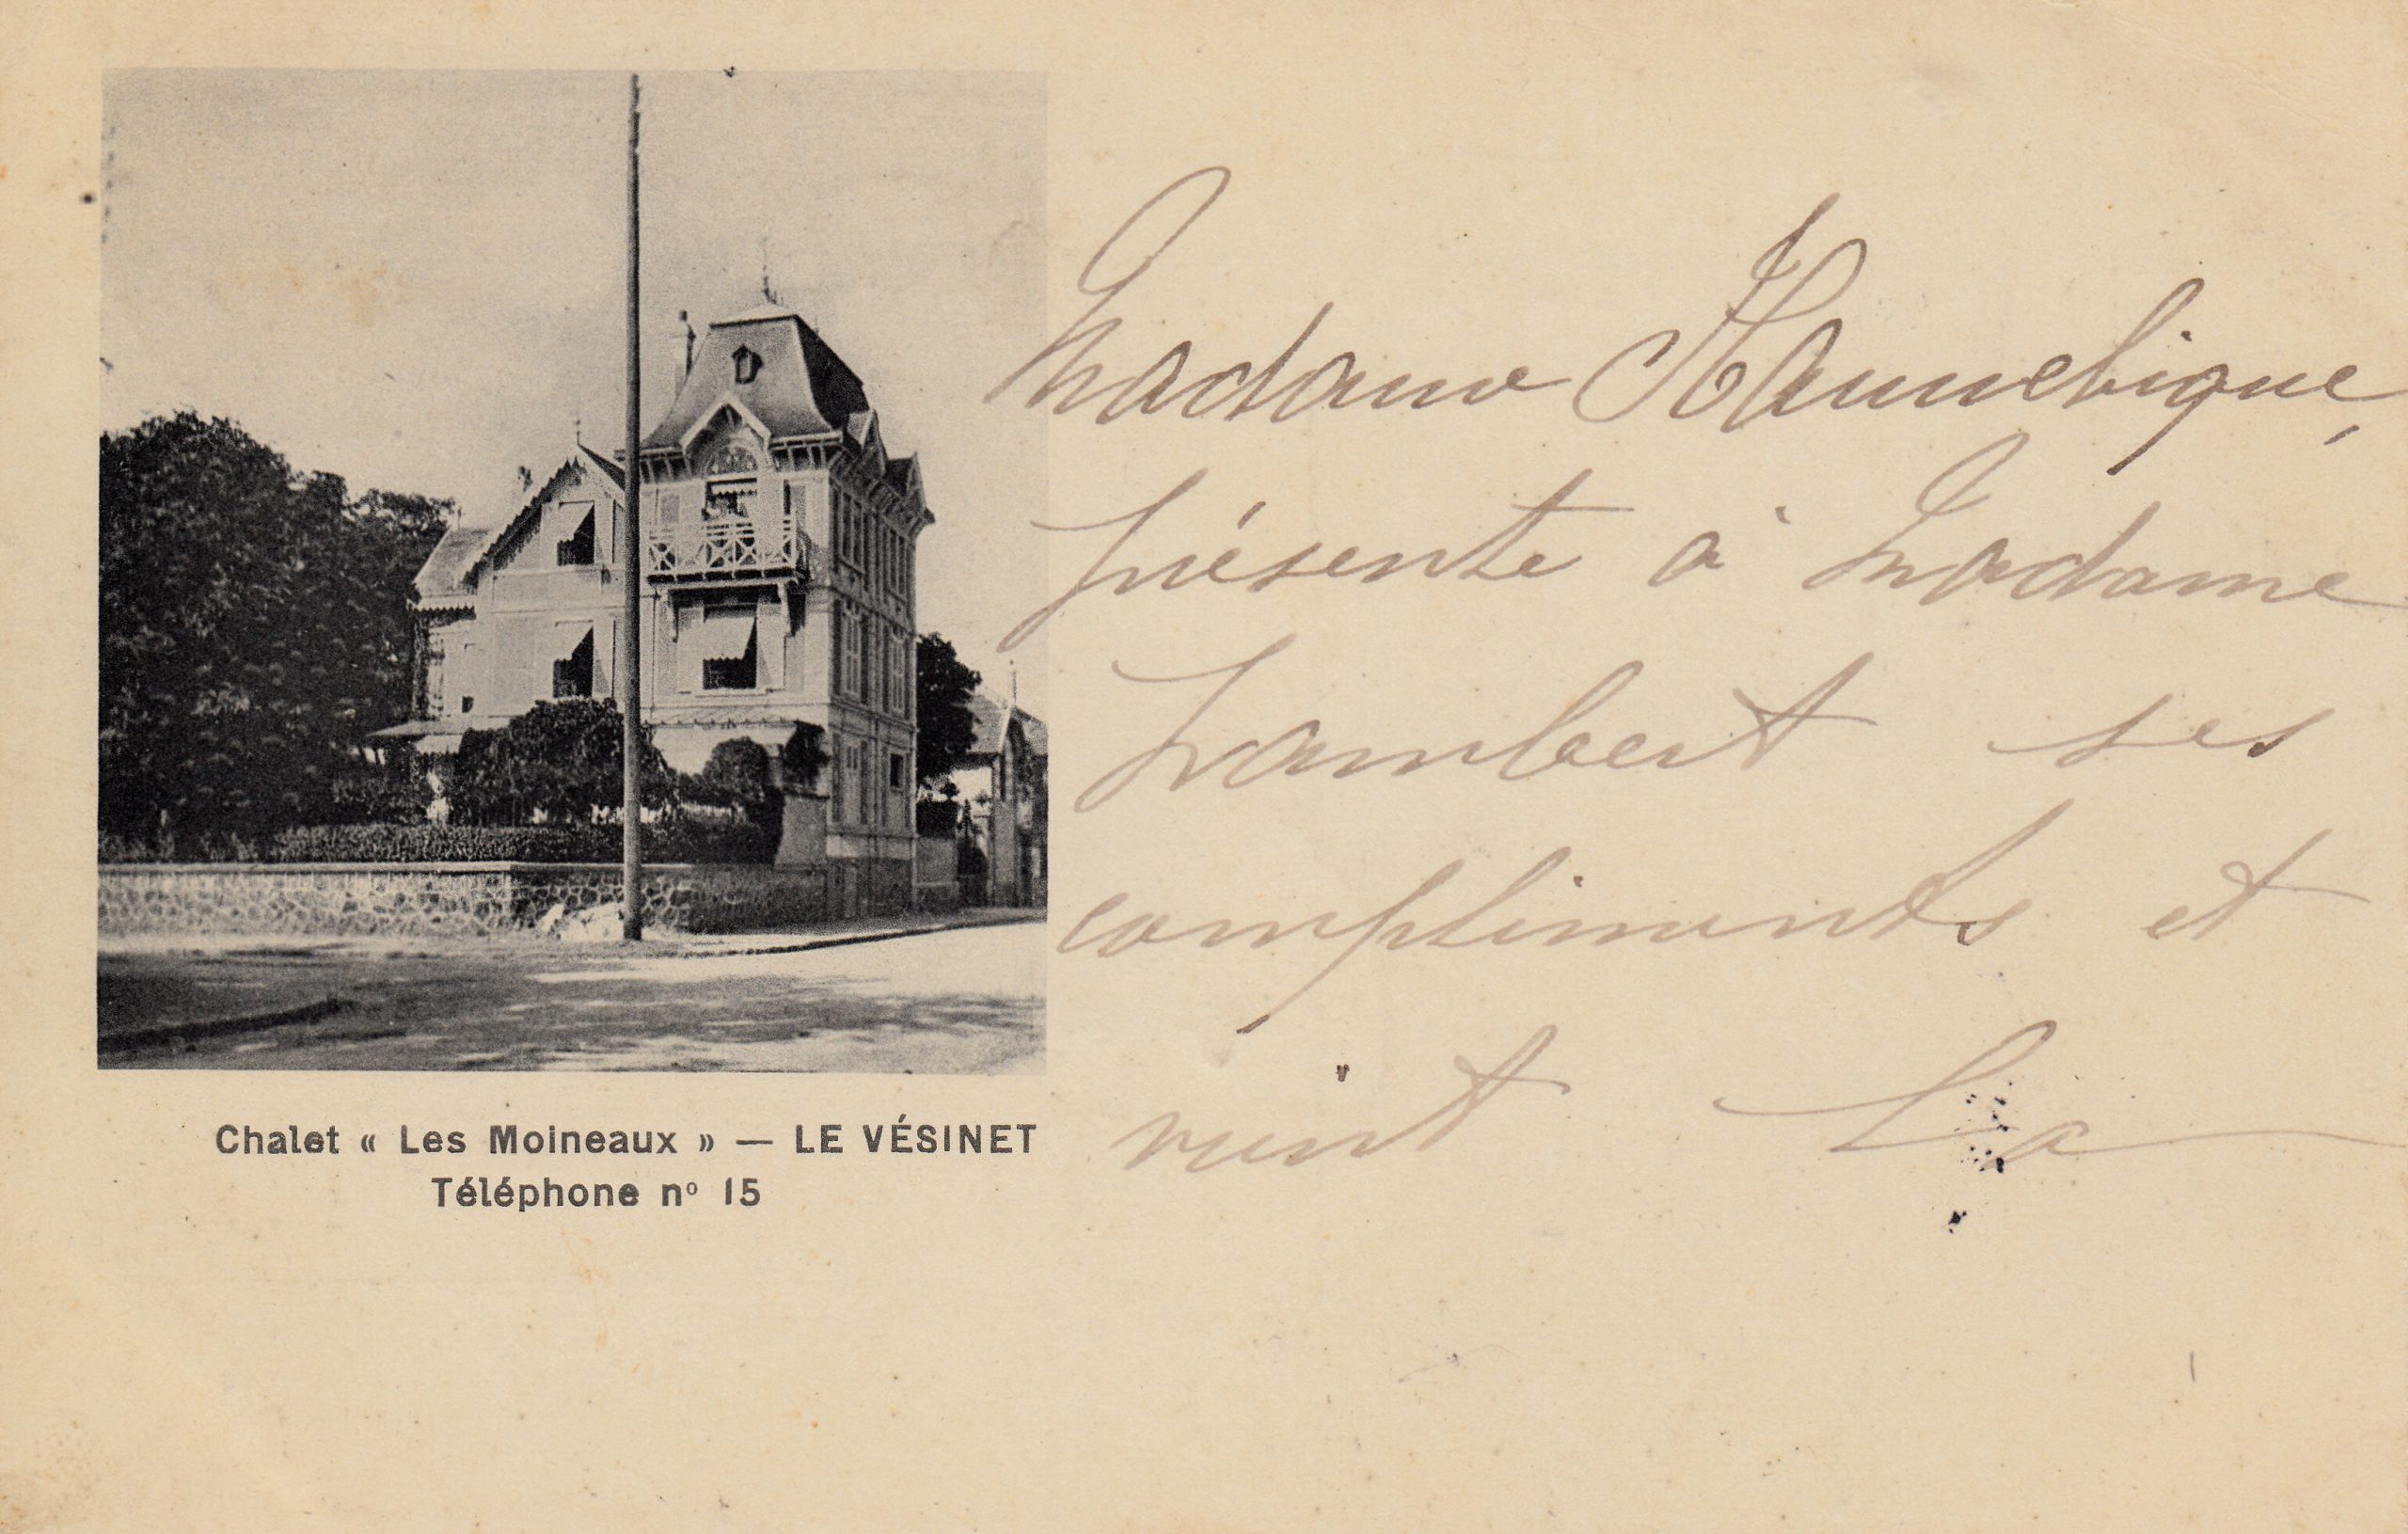 Madame Hennebique,
présente à Madame
Lambert ses
compliments et
vient La
Chalet « Les Moineaux » — LE VÉSINET
Téléphone nº 15